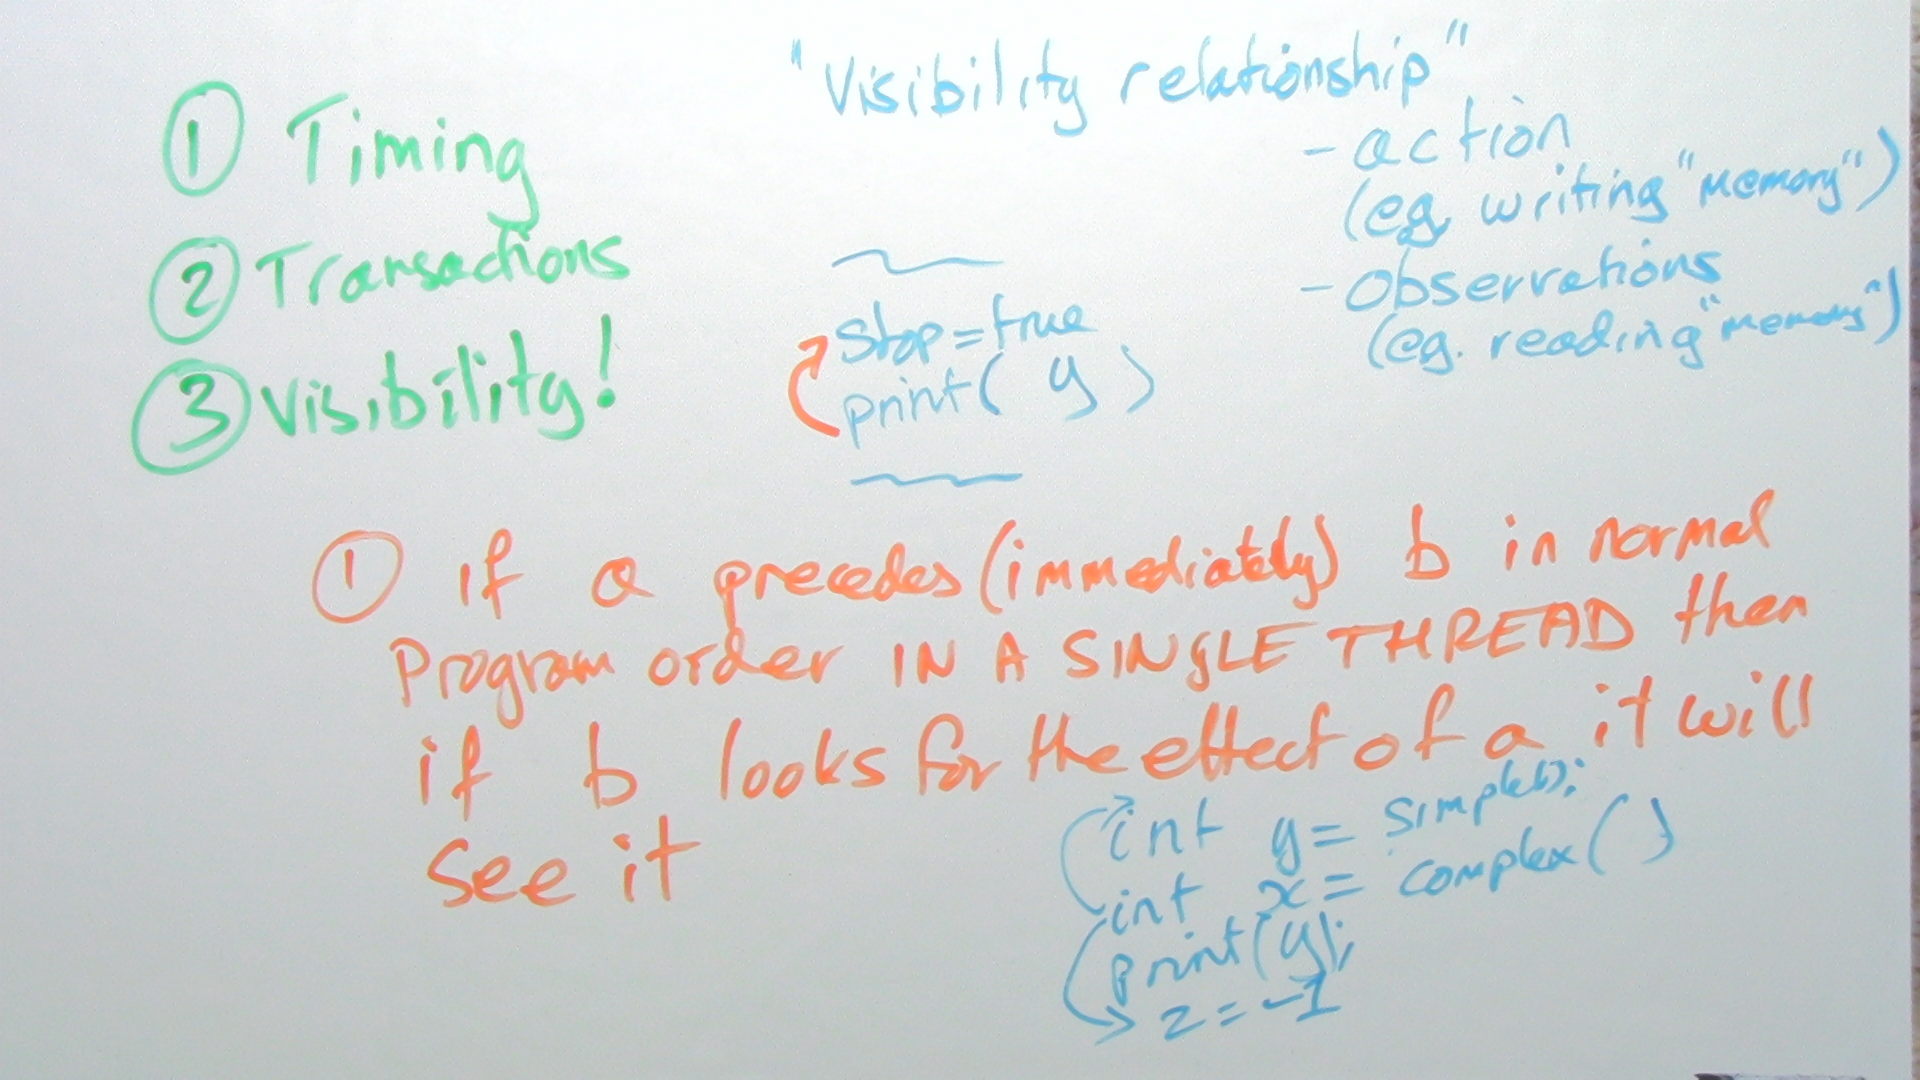 ① Timing
② Transactions
③ Visibility!
"Visibility relationship"
- action
(eg, writing "memory")
- Observations
(eg. reading "memory")
Stop = true
print( y )
① if a precedes (immediately) b in normal
Program order IN A SINGLE THREAD then
if b looks for the effect of a it will
see it
int y = simple();
int x = complex( )
print(y);
z = -1